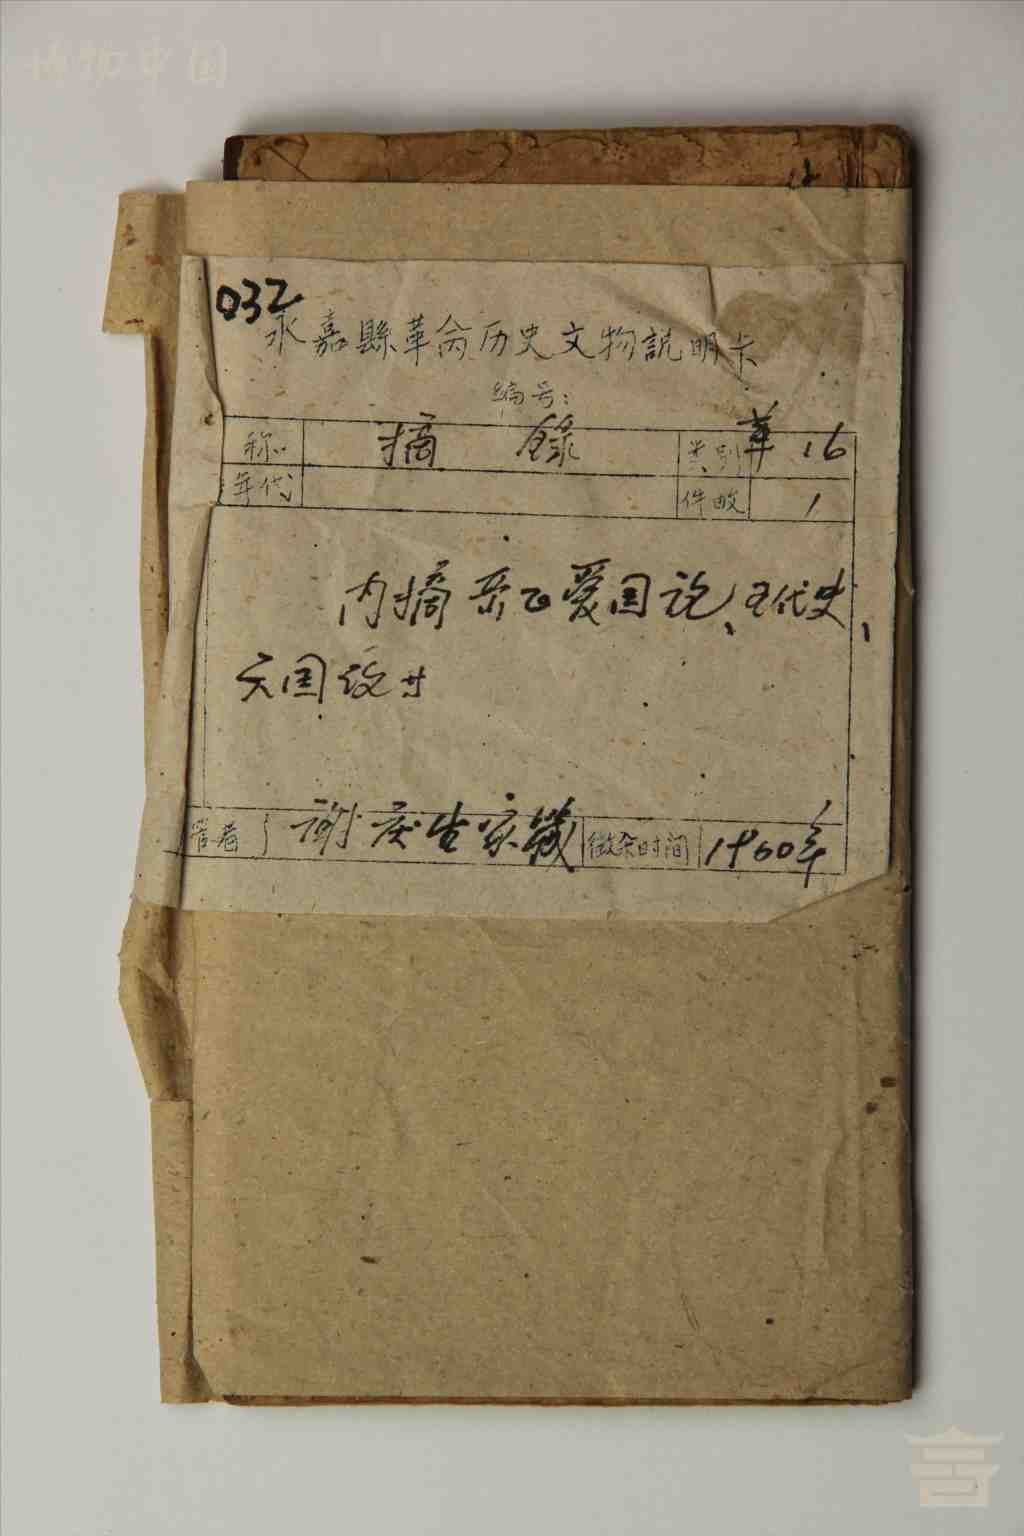 博物中国
032
永嘉縣革命历史文物説明卡
编号：
称 摘 錄 类别 革 16
年代 件数 1
内摘 爱国论、五代史、
六国
谢庆生家 徵集时间 1960年